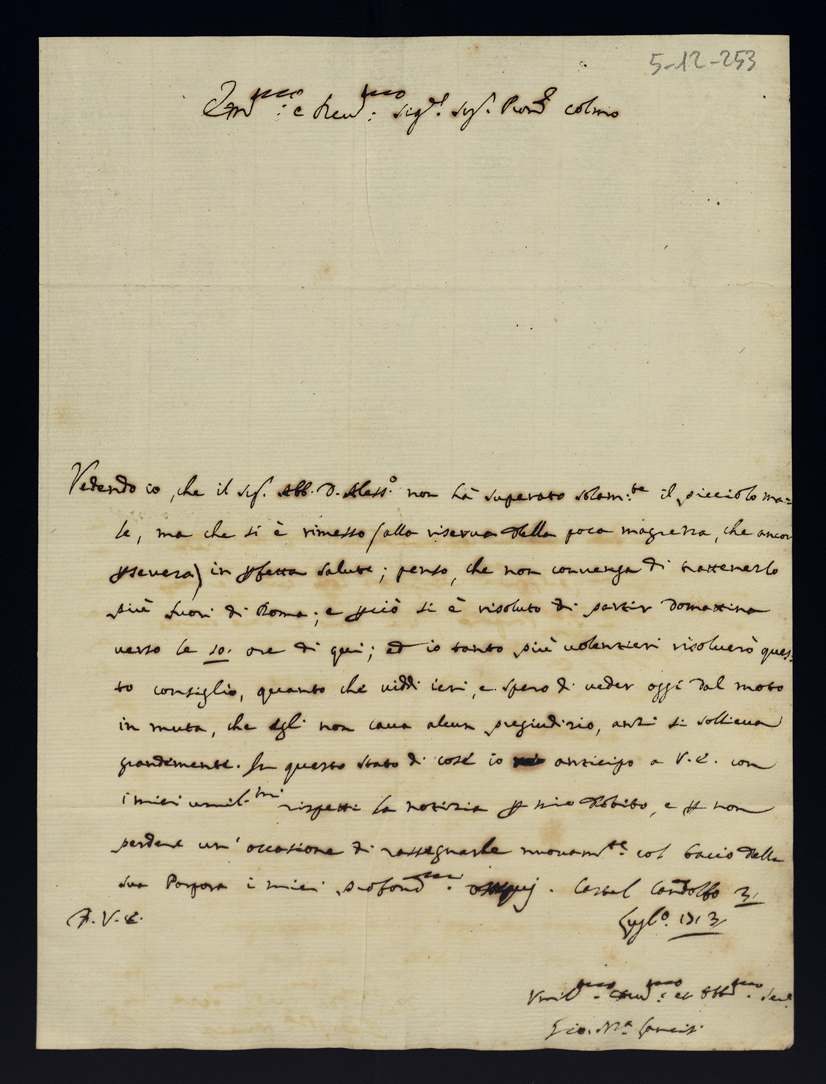 5-12-253
Em.mo: e Rev.mo: Sig.r Sig.r Pron.e colmo
Vedendo io, che il Sig.r Abb. D. Aless.o non hà superato solam:te il picciolo ma=
le, ma che si è rimesso (alla riserva della poca magrezza, che ancor
persevera) in perfetta salute; penso, che non convenga di trattenerlo
più fuori di Roma; e perciò si è risoluto di partir domattina
verso le 10. ore di qui; ed io tanto più volentieri risolverò ques=
to consiglio, quanto che viddi ieri, e spero di veder oggi dal moto
in muta, che egli non cava alcun pregiudizio, anzi si sollieva
grandemente. In questo stato di cose io anticipo a V.E. con
i miei umil.mi rispetti la notizia per mio debito, e per non
perdere un' occasione di rassegnarle nuovam.te col bacio della
sua Porpora i miei profond.mi ossequj. Castel Gandolfo 3
Lugl.o 1713
D. V. E.
Umil.mo Dev.mo: et Obb.mo Ser.e
Gio. M.a Lancisi